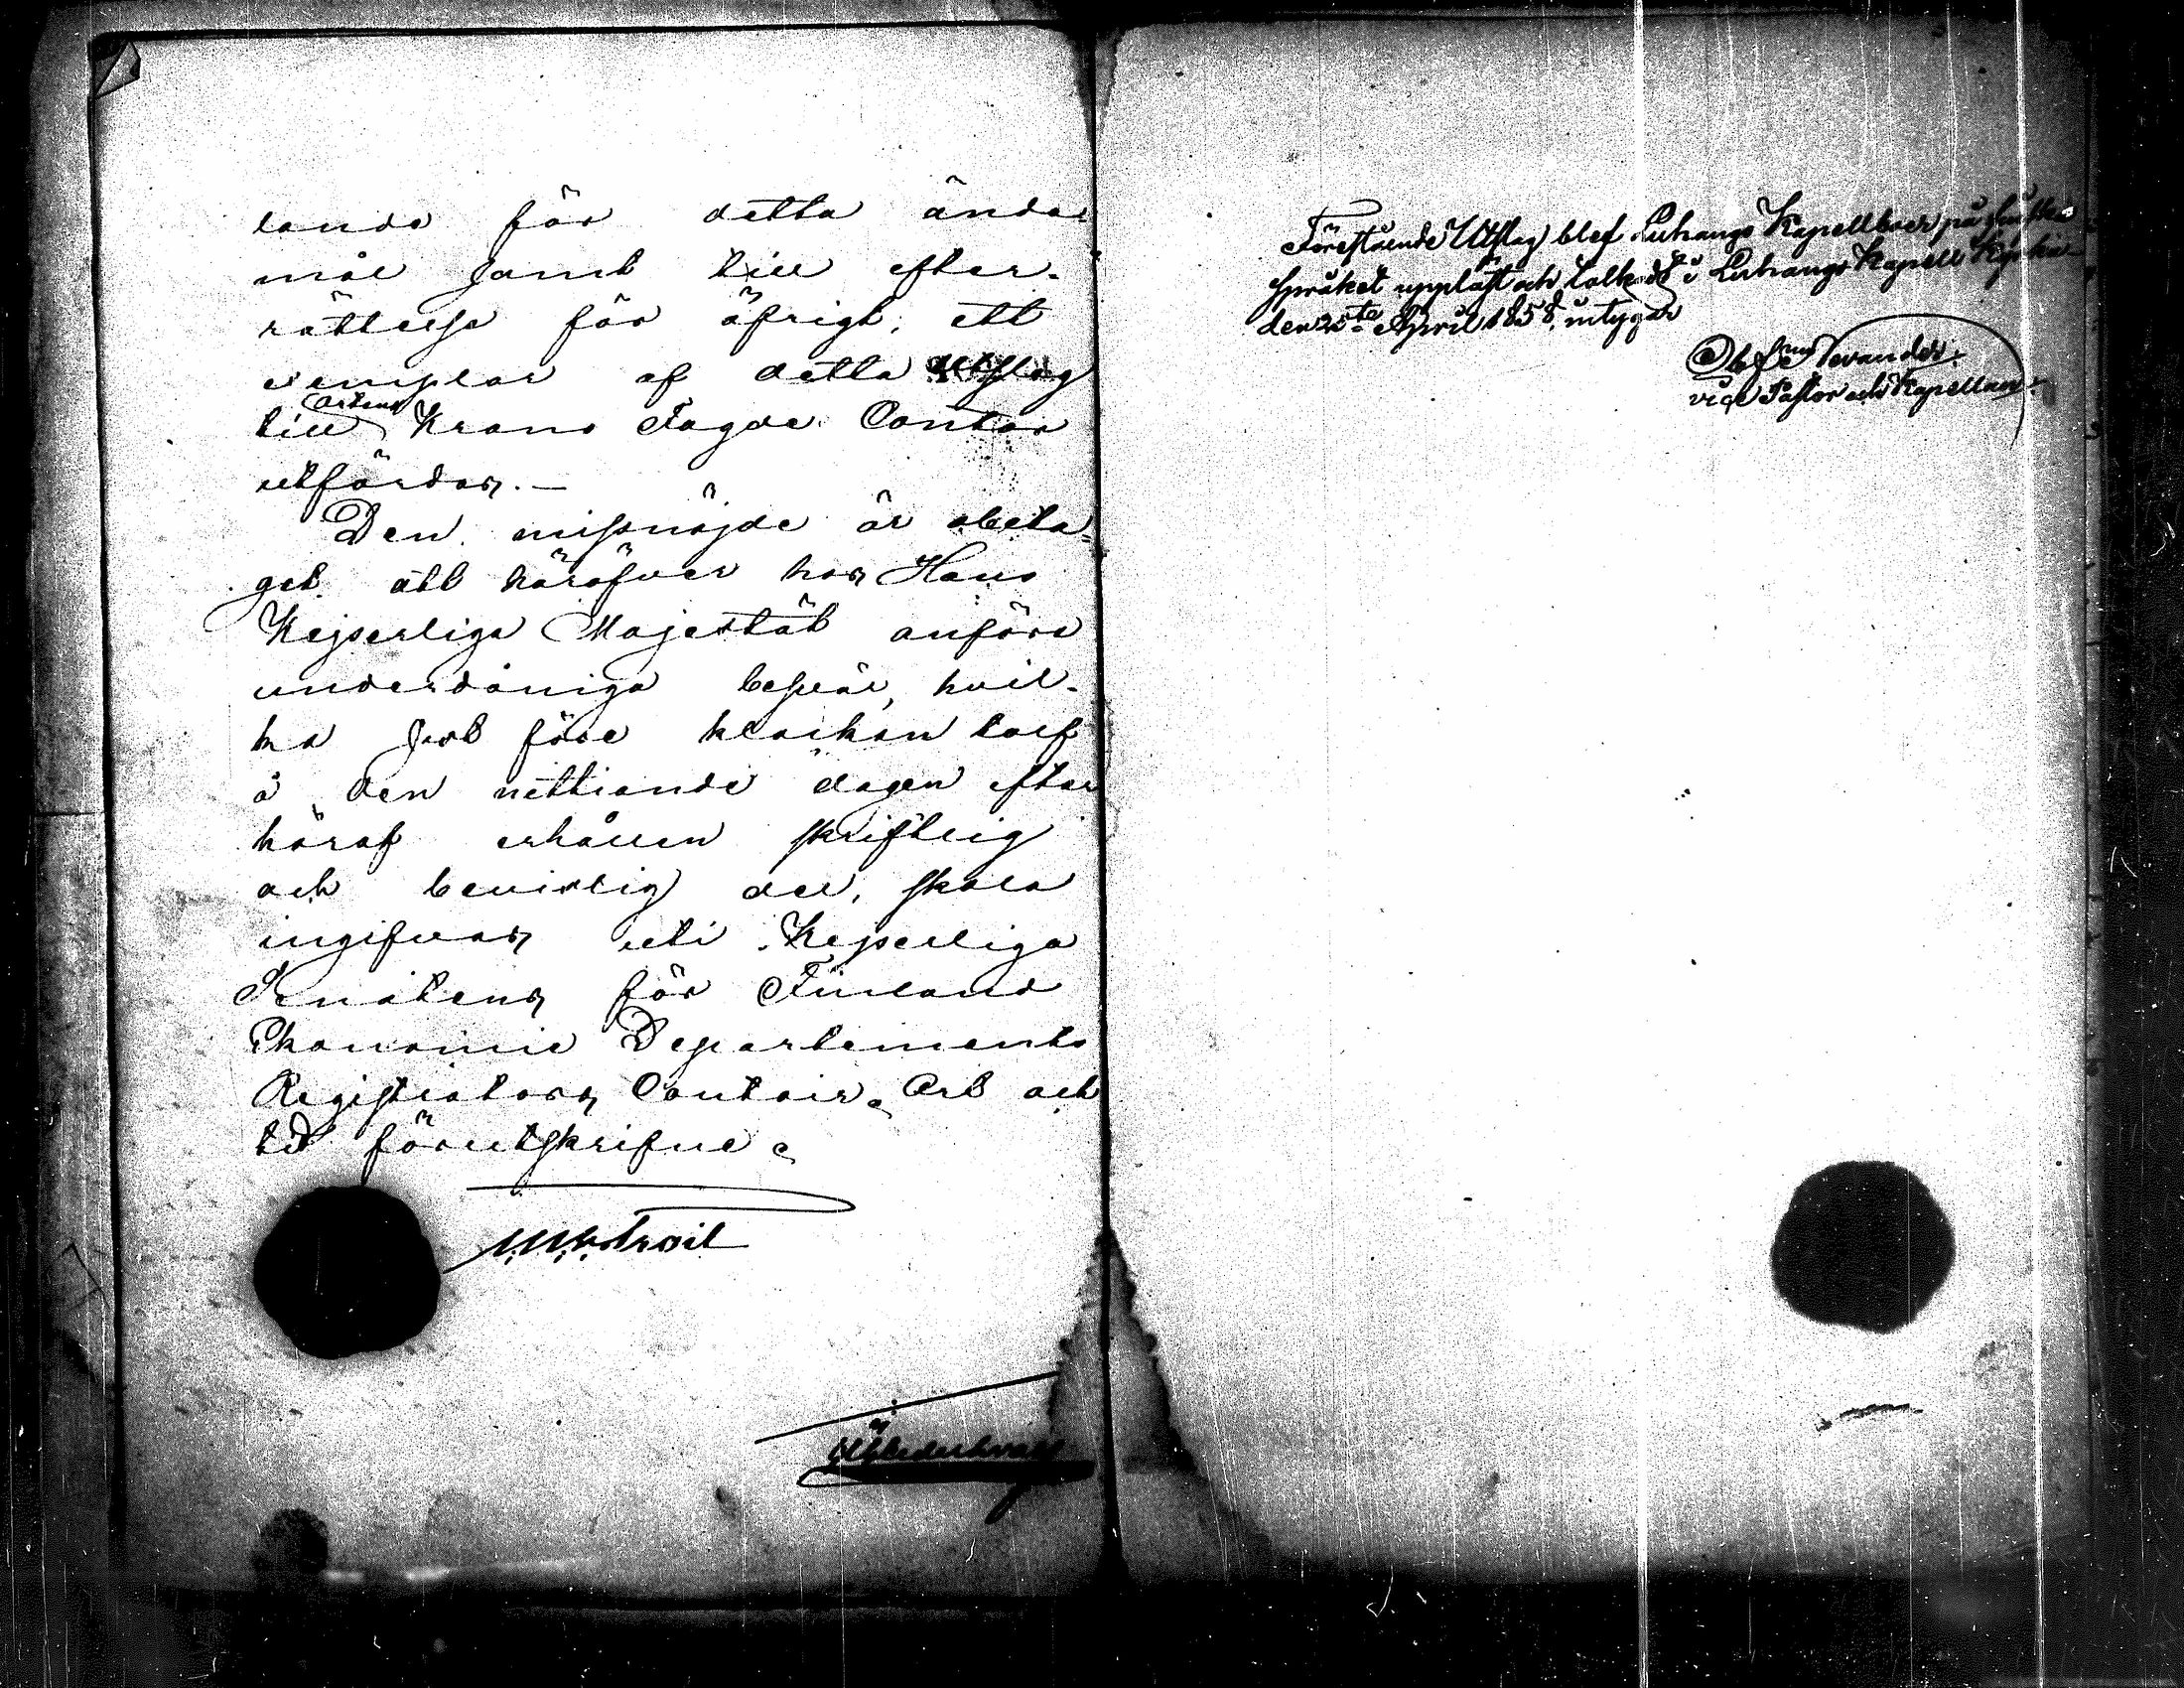 lande för detta ända-
mål samt till efter-
rättelse för öfrigt, ett
exemplar af detta Utslag
till Ortens Krono Fogde Contor
utfärdas.—
Den missnöjde är obeta-
get att häröfver hos Hans
Kejserliga Majestät anföra
underdåniga besvär, hvil-
ka sist före klockan tolf
å den nittionde dagen efter
häraf erhållen skriftlig
och bevislig del, skola
ingifvas uti Kejserliga
Senatens för Finland
Ekonomie Departements
Registrators Contoir. Ort och
tid förutskrifne.
Troil
Förestående Utslag blef Luhango Kapellboer på finska
språket uppläst och tolkadt i Luhango Kapell Kyrka
den April 1858, intygar
vice Pastor och Kapellan.